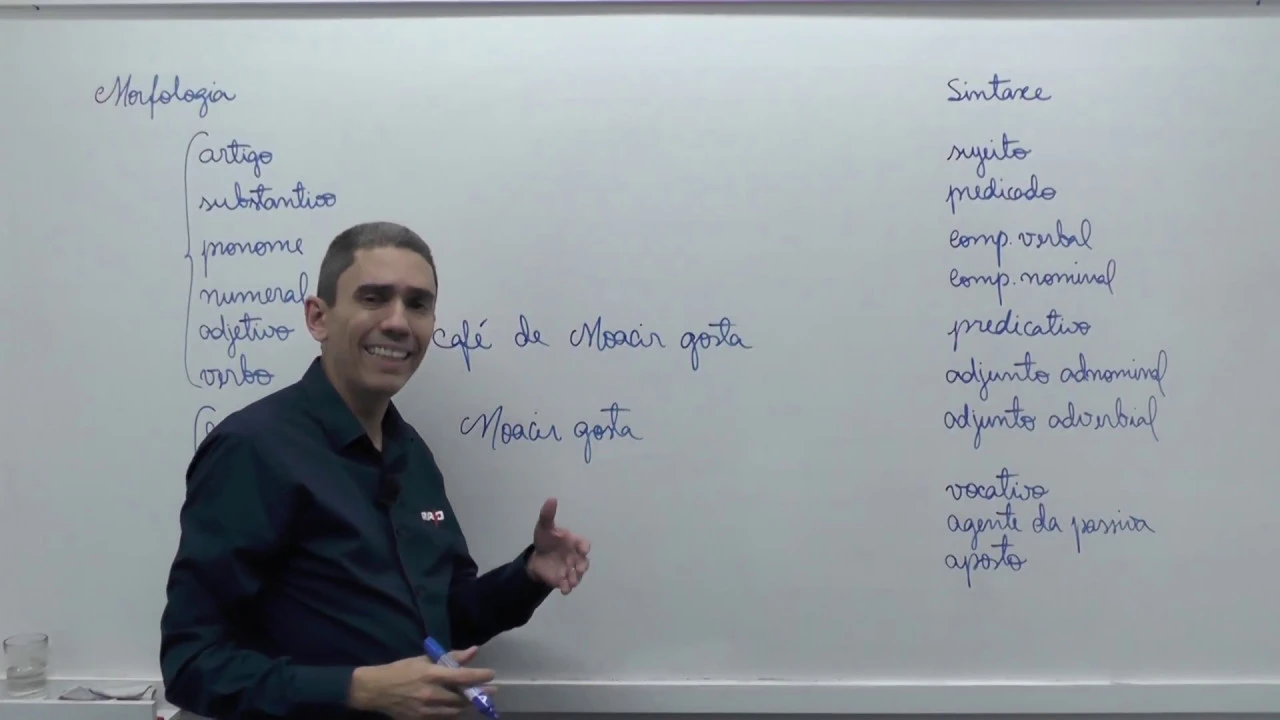 Morfologia
artigo
substantivo
pronome
numeral
adjetivo
verbo
café de Moacir gosta
Moacir gosta
Sintaxe
sujeito
predicado
comp. verbal
comp. nominal
predicativo
adjunto adnominal
adjunto adverbial
vocativo
agente da passiva
aposto